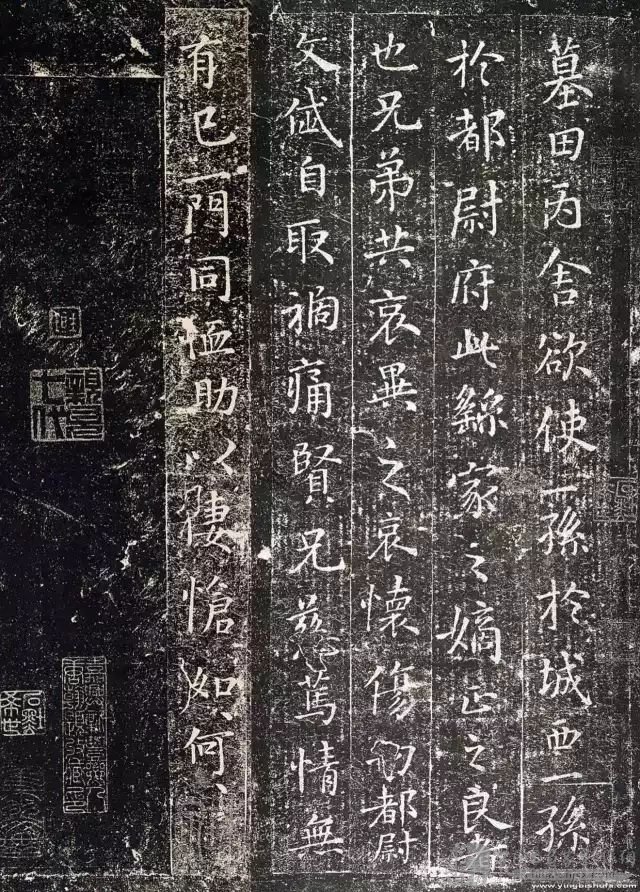 墓田丙舍欲使一孫於城西一孫
於都尉府此繇家之嫡正之良者
也兄弟共哀異之哀懷傷切都尉
文岱自取禍痛賢兄慈篤情無
有已一門同恤助以悽愴如、何、
www.yingbishufa.com